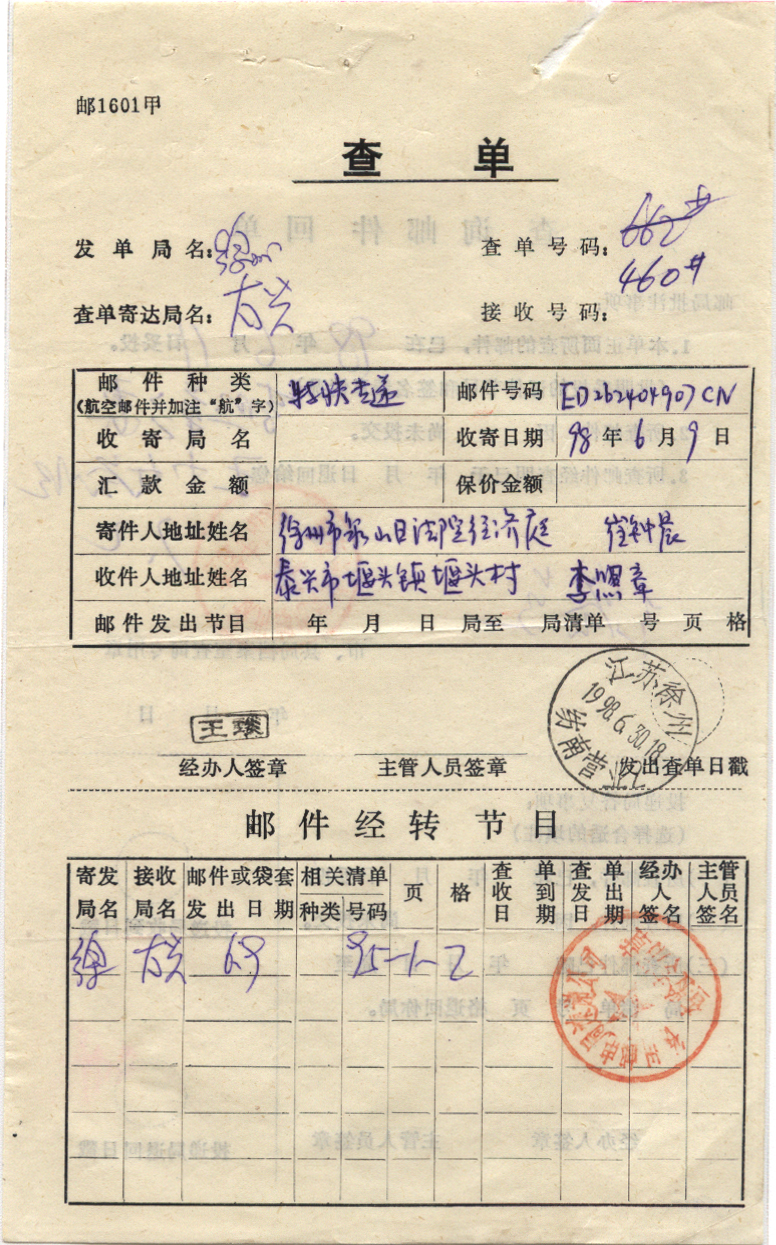 邮1601甲
查 单
发单局名：徐州 查单号码：662#
460#
查单寄达局名：泰兴 接收号码：
邮件种类 特快专递 邮件号码 ED262404907CN
（航空邮件并加注“航”字）
收寄局名 收寄日期 98年6月9日
汇款金额 保价金额
寄件人地址姓名 徐州市泉山区法院经济庭 崔钟晨
收件人地址姓名 泰兴市堰头镇堰头村 李照章
邮件发出节目 年 月 日 局至 局清单 号 页 格
江苏徐州
1998.6.30.18
营业
王
经办人签章 主管人员签章 发出查单日戳
邮件经转节目
寄发局名 接收局名 邮件或袋套发出日期 相关清单 种类 号码 页 格 查单收到日期 查单发出日期 经办人签名 主管人员签名
徐 泰兴 6.9 95-1-2